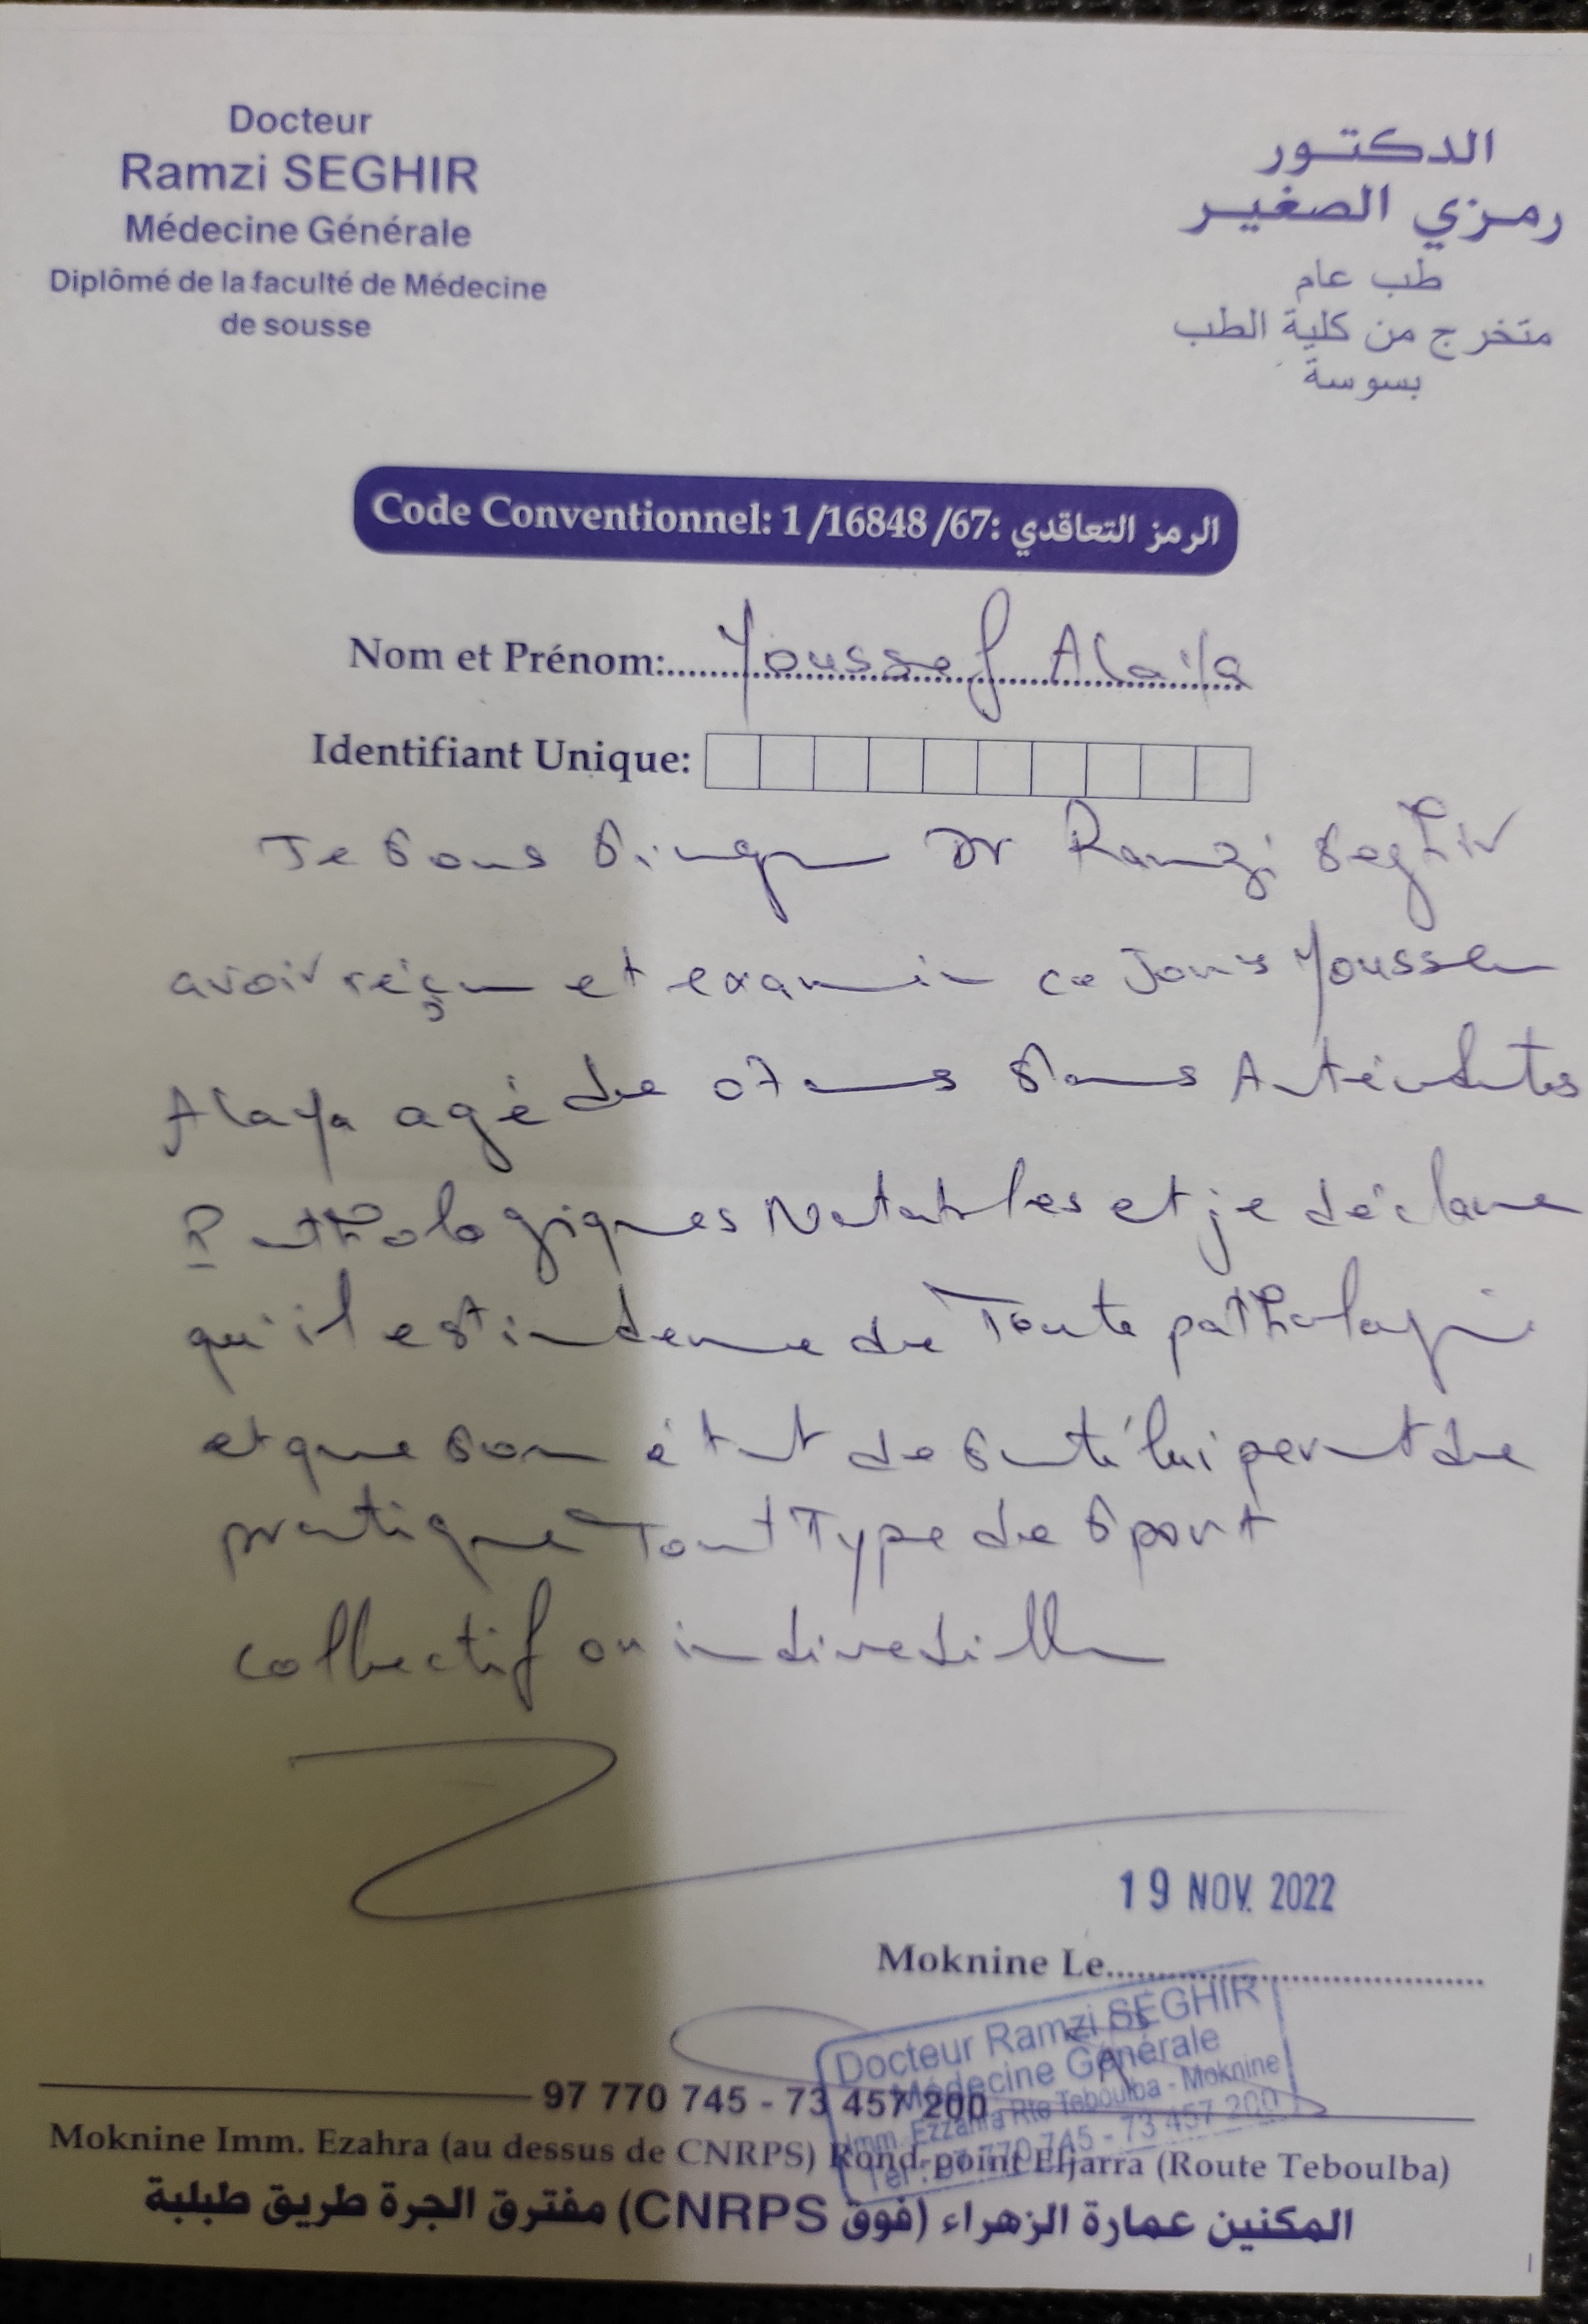 Docteur
Ramzi SEGHIR
Médecine Générale
Diplômé de la faculté de Médecine
de sousse
الدكتور
رمزي الصغير
طب عام
متخرج من كلية الطب
بسوسة
Code Conventionnel: 1/16848/67: الرمز التعاقدي
Nom et Prénom: Youssef Alaya
Identifiant Unique:
Je sous signe Dr Ramzi Seghir
avoir réçu et examine ce jours Youssef
Alaya agé de 07 ans sans Antécédents
Pathologiques Notables et je déclare
qu'il est indemne de Toute pathologie
et que son état de santé lui permet de
pratique Tout Type de Sport
collectif ou
19 NOV. 2022
Moknine Le
Docteur Ramzi SEGHIR
Médecine Générale
Imm. Ezzahra Rte Teboulba - Moknine
Tél : 97 770 745 - 73 457 200
97 770 745 - 73 457 200
Moknine Imm. Ezahra (au dessus de CNRPS) Rond-point Eljarra (Route Teboulba)
المكنين عمارة الزهراء (فوق CNRPS) مفترق الجرة طريق طبلبة